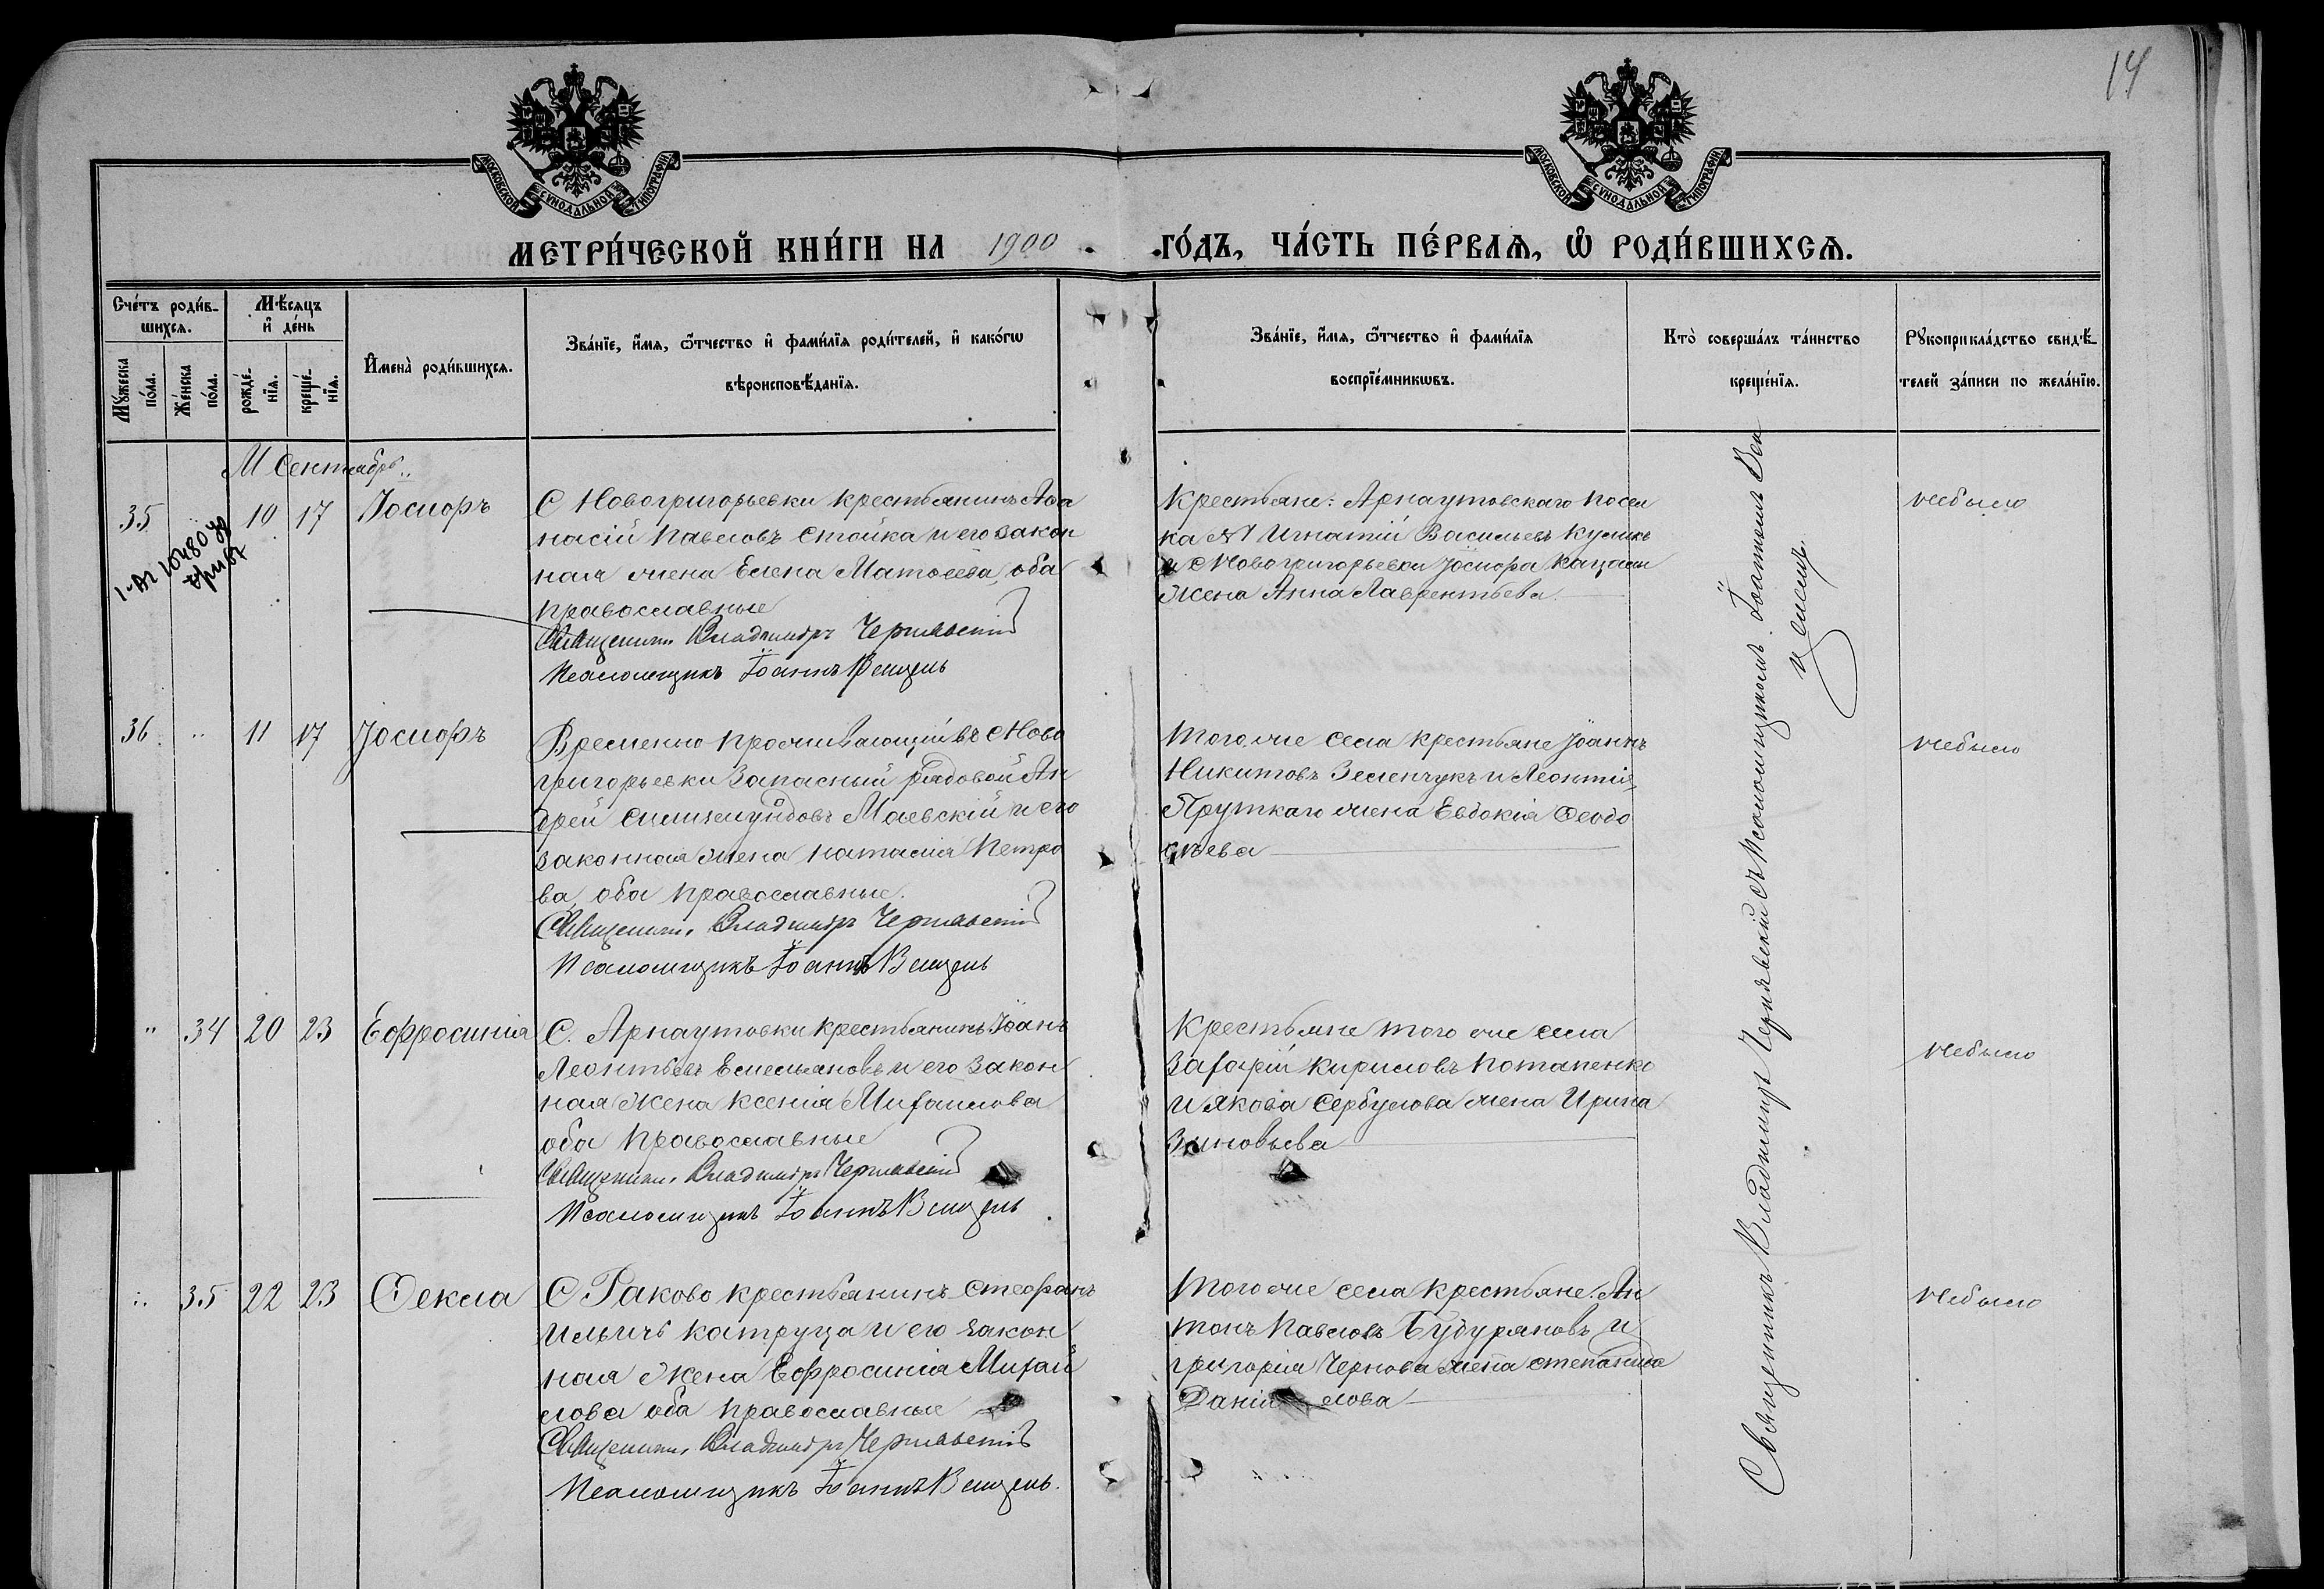 14
МОСКОВСКОЙ СѴНОДАЛЬНОЙ ТИПОГРАФІИ
МОСКОВСКОЙ СѴНОДАЛЬНОЙ ТИПОГРАФІИ
МЕТРИ́ЧЕСКОЙ КНИ́ГИ НА 1900 ГО́ДЪ, ЧА́СТЬ ПЕ́РВАѦ, Ѡ РОДИ́ВШИХСѦ.
Сче́тъ роди́в-
шихсѧ.
Мꙋ́жеска
по́ла.
Же́нска
по́ла.
Мѣ́сѧцъ
и҆ де́нь
рожде́-
нїѧ.
креще́-
нїѧ.
И҆мена̀ роди́вшихсѧ.
Зва́нїе, и҆́мѧ, ѻ҆́тчество и҆ фами́лїѧ роди́телей, и҆ како́гѡ
вѣроисповѣ́данїѧ.
Зва́нїе, и҆́мѧ, ѻ҆́тчество и҆ фами́лїѧ
воспрїе́мникѡвъ.
Кто̀ соверша́лъ та́инство
креще́нїѧ.
Рꙋкоприкла́дство свидѣ́-
телей за́писи по жела́нїю.
М Сентябрь
35 10 17 Іосифъ
С Новогригорьевки крестьянинъ Афа
насій Павловъ Стойка и его закон
ная жена Елена Матѳеева, оба
православные
Священникъ Владиміръ Чернявскій
Псаломщикъ Іоаннъ Венцель
Крестьяне: Арнаутовскаго посел
ка Игнатій Васильевъ Куликъ
и С Новогригорьевки Іосифа Кацали
жена Анна Лаврентьева
небыло
36 " 11 17 Іосифъ
Временно проживающій въ с Ново
григорьевки запасный рядовой Ан
дрей Сигизмундовъ Маевскій и его
законная жена Наталія Петро
ва, оба православные.
Священникъ Владиміръ Чернявскій
Псаломщикъ Іоаннъ Венцель
Того же села крестьяне Іоаннъ
Никитовъ Зеленчукъ и Леонтія
Пруткаго жена Евдокія Ѳеодо
сіева
небыло
" 34 20 23 Ефросинія
С. Арнаутовки крестьянинъ Іоанъ
Леонтьевъ Емельяновъ и его закон
ная жена Ксенія Михаилова
оба православные
Священникъ Владиміръ Чернявскій
Псаломщикъ Іоаннъ Венцель
Крестьяне того же села
Захарій Кириловъ Потапенко
и Якова Сербулова жена Ирина
Зиновьева
небыло
" 35 22 23 Ѳекла
С Раково крестьянинъ Стефанъ
Ильичъ Катруца и его закон
ная жена Ефросинія Михай
лова оба православные
Священникъ Владиміръ Чернявскій
Псаломщикъ Іоаннъ Венцель.
Того же села крестьяне: Ан
тонъ Павловъ Будуряновъ и
Григорія Чернова жена Степанида
Даніилова
небыло
Священникъ Владиміръ Чернявскій съ Псаломщикомъ Іоанномъ Вен
целемъ.